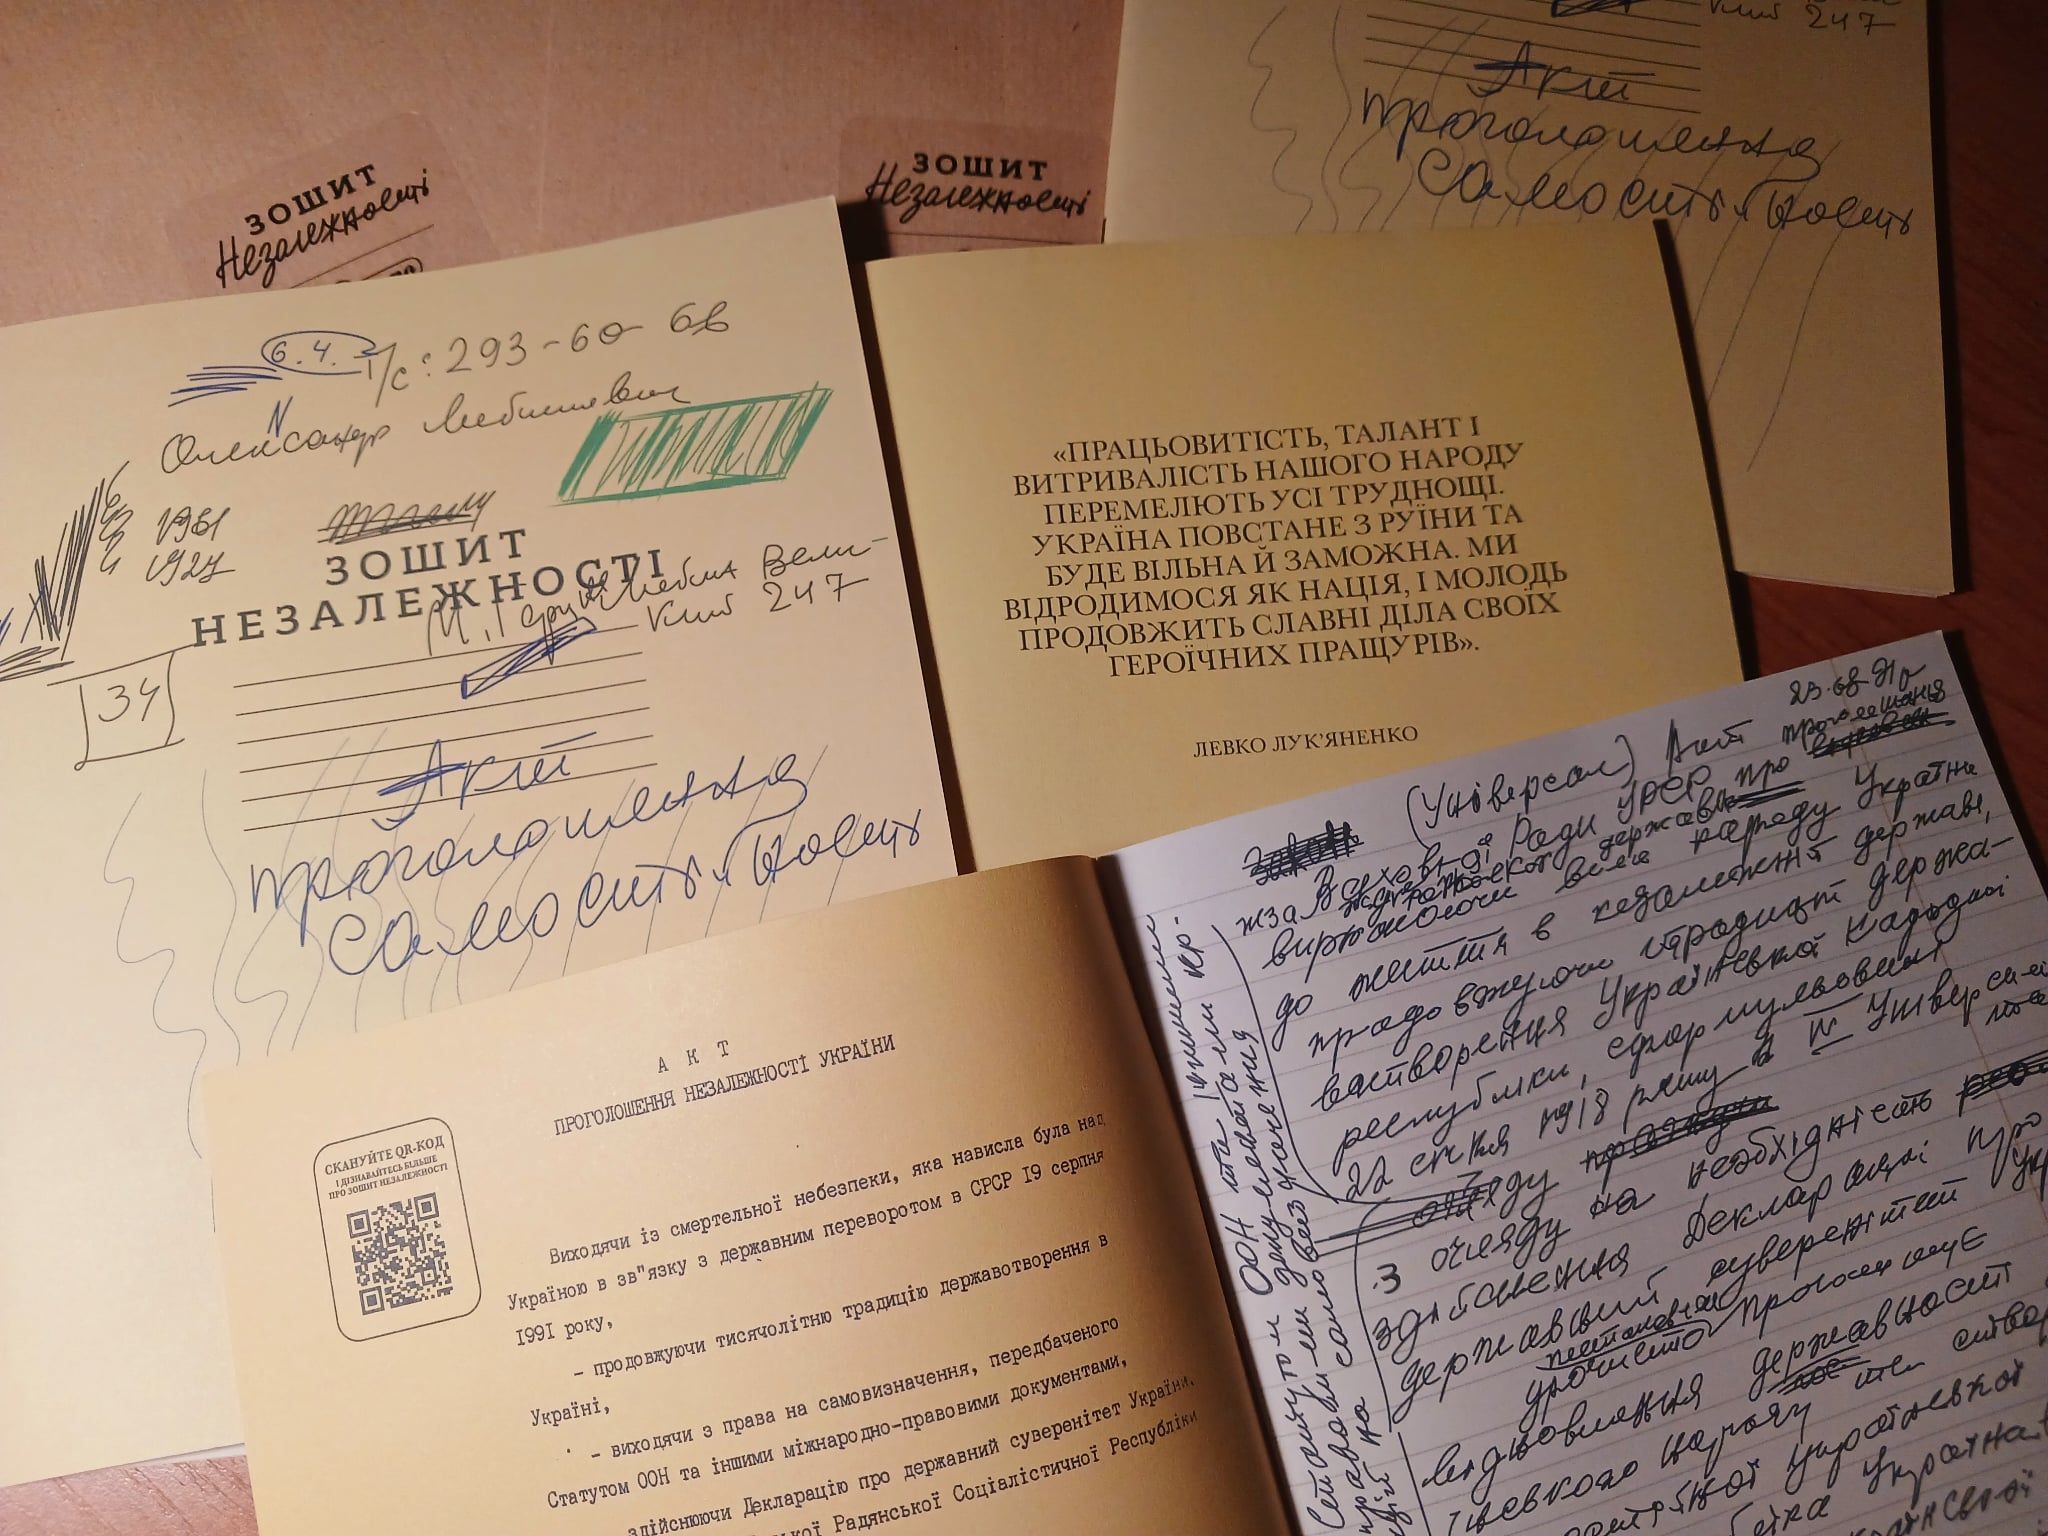 ЗОШИТ
Незалежності
ЗОШИТ
Незалежності
247
Акт
проголошення
самостійності
6.4.
т/с: 293-60-68
Олександр
1951
1927
ЗОШИТ
НЕЗАЛЕЖНОСТІ
247
34
Акт
проголошення
самостійності
«ПРАЦЬОВИТІСТЬ, ТАЛАНТ І
ВИТРИВАЛІСТЬ НАШОГО НАРОДУ
ПЕРЕМЕЛЮТЬ УСІ ТРУДНОЩІ.
УКРАЇНА ПОВСТАНЕ З РУЇНИ ТА
БУДЕ ВІЛЬНА Й ЗАМОЖНА. МИ
ВІДРОДИМОСЯ ЯК НАЦІЯ, І МОЛОДЬ
ПРОДОВЖИТЬ СЛАВНІ ДІЛА СВОЇХ
ГЕРОЇЧНИХ ПРАЩУРІВ».
ЛЕВКО ЛУК'ЯНЕНКО
А К Т
ПРОГОЛОШЕННЯ НЕЗАЛЕЖНОСТІ УКРАЇНИ
СКАНУЙТЕ QR-КОД
І ДІЗНАВАЙТЕСЬ БІЛЬШЕ
ПРО ЗОШИТ НЕЗАЛЕЖНОСТІ
Виходячи із смертельної небезпеки, яка нависла була над
Україною в зв"язку з державним переворотом в СРСР 19 серпня
1991 року,
- продовжуючи тисячолітню традицію державотворення в
Україні,
- виходячи з права на самовизначення, передбаченого
Статутом ООН та іншими міжнародно-правовими документами,
здійснюючи Декларацію про державний суверенітет України,
Радянської Соціалістичної Республіки
(Універсал) Акт проголошення
Верховної Ради УРСР про
виражаючи волю народу України
до життя в незалежній державі,
продовжуючи традиції держа-
вотворення Української Народної
республіки, сформульовані
22 січня 1918 року в IV Універсалі
з огляду на необхідність
здійснення Декларації про
державний суверенітет
урочисто проголошує
відновлення державності
народу та
української
Статутом ООН та іншими
документами
право на самовизначення